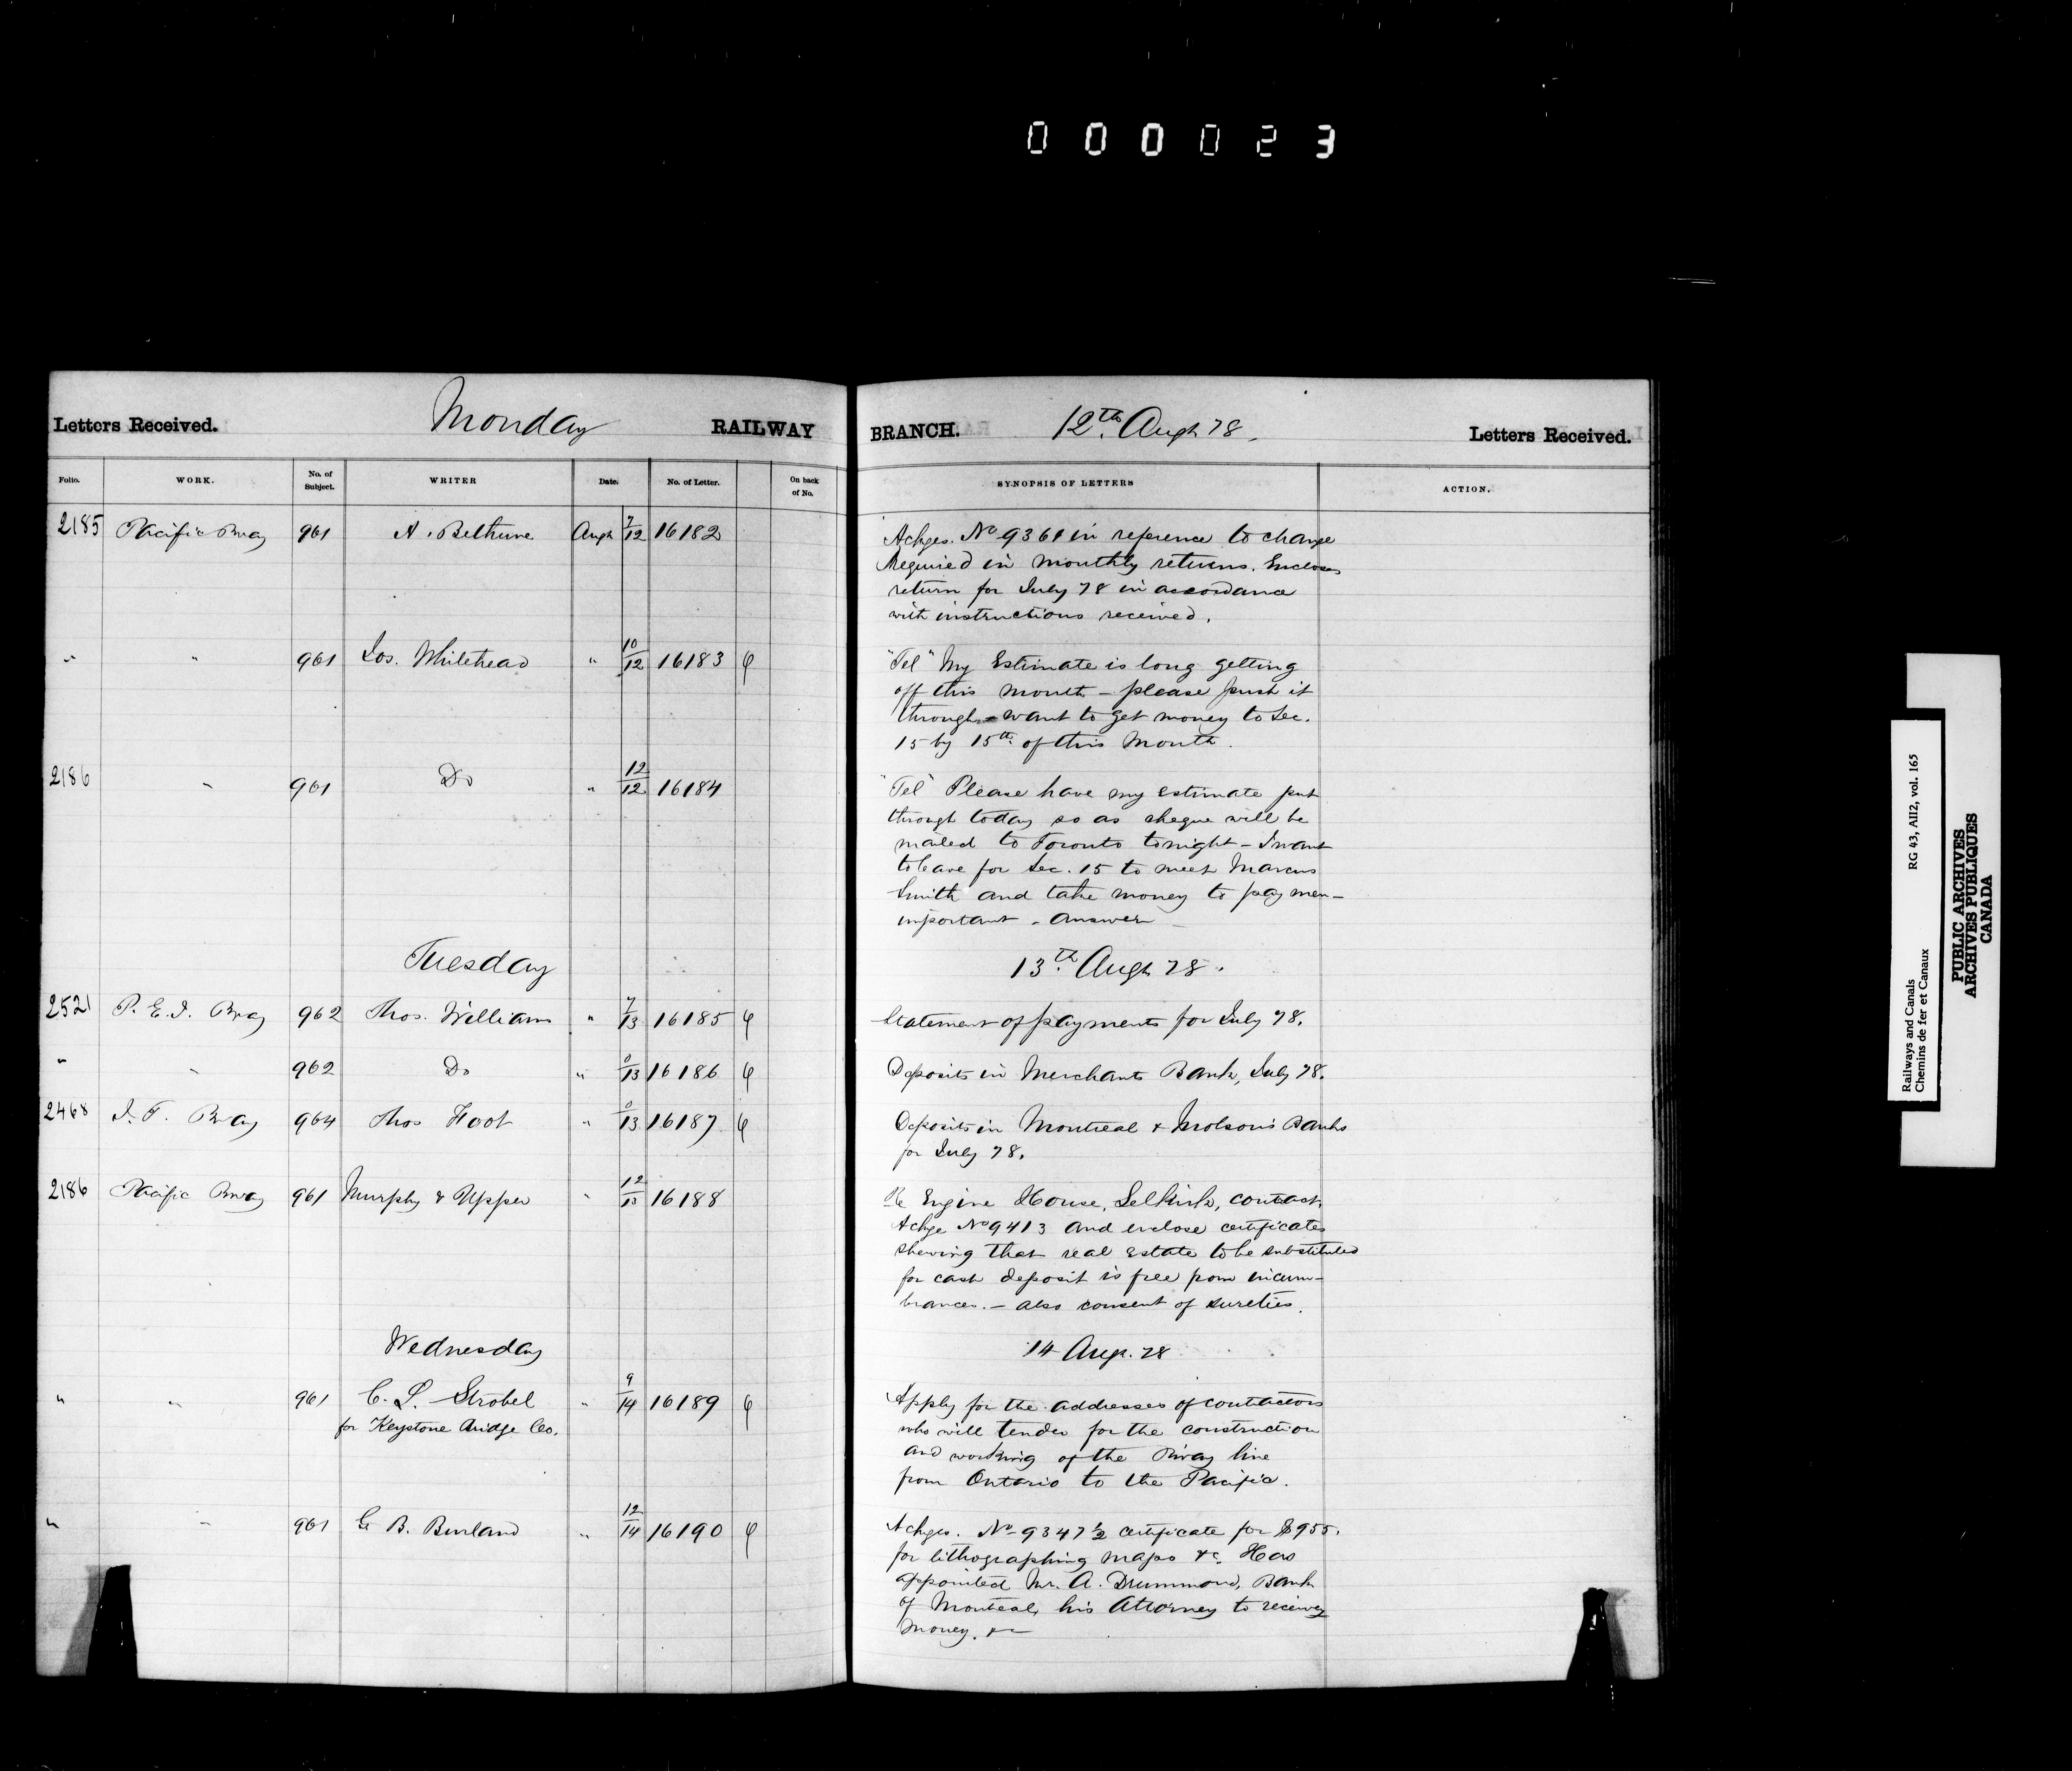 000023
Letters Received. Monday RAILWAY BRANCH. 12th. Augt 78. Letters Received.
Folio. WORK. No. of Subject. WRITER Date. No. of Letter. On back of No. SYNOPSIS OF LETTERS ACTION.
2185 Pacific Rway 961 A. Bethune Augt 7/12 16182 Ackges. No 9361 in reference to change
required in monthly returns. Encloses
return for July 78 in accordance
with instructions received.
" " 961 Jos. Whitehead " 10/12 16183 "Tel" My Estimate is long getting
off this month - please push it
through - want to get money to Sec.
15 by 15th. of this Month.
2186 " 961 Do " 12/12 16184 "Tel" Please have my estimate put
through today so as cheque will be
mailed to Toronto tonight - I want
to leave for Sec. 15 to meet Marcus
Smith and take money to pay men -
important - answer
Tuesday 13th. Augt 78.
2521 P. E. I. Rway 962 Thos. Williams " 7/13 16185 Statement of payments for July 78.
" " 962 Do " 0/13 16186 Deposits in Merchants Bank, July 78.
2468 I. F. Rway 964 Thos Foot " 0/13 16187 Deposits in Montreal & Molson's Banks
for July 78.
2186 Pacific Rway 961 Murphy & Upper " 12/13 16188 Re Engine House, Selkirk, contract
Ackge No 9413 and enclose certificates
shewing that real estate to be substituted
for cash deposit is free from incum-
brances. - also consent of sureties.
Wednesday 14 Aug. 78
" " 961 C. L. Strobel " 9/14 16189 Apply for the addresses of contractors
for Keystone Bridge Co. who will tender for the construction
and working of the Rway line
from Ontario to the Pacific.
" " 961 G. B. Burland " 12/14 16190 Ackges. No 9347½ certificate for $955.
for lithographing maps &c. Has
appointed Mr. A. Drummond, Bank
of Montreal, his Attorney to receive
money. &c
Railways and Canals RG 43, AII2, vol. 165
Chemins de fer et Canaux
PUBLIC ARCHIVES
ARCHIVES PUBLIQUES
CANADA